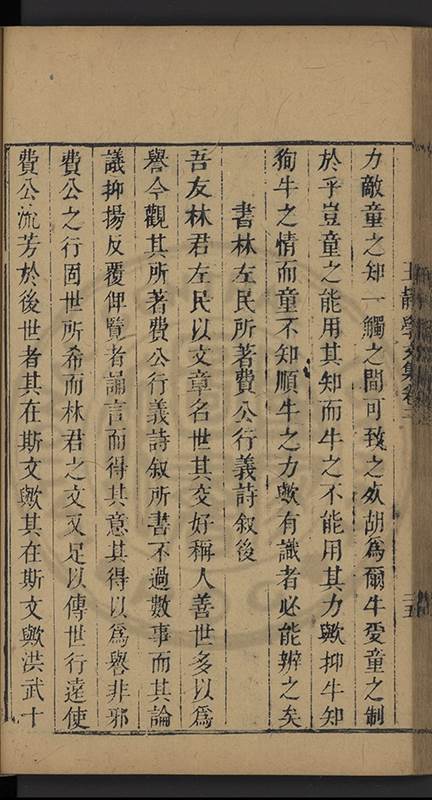 力敵童之知一觸之間可致之死胡為爾牛受童之制
於乎豈童之能用其知而牛之不能用其力歟抑牛知
狥牛之情而童不知順牛之力歟有識者必能辨之矣
書林左民所著費公行義詩叙後
吾友林君左民以文章名世其交好稱人善世多以為
譽今觀其所著費公行義詩叙所書不過數事而其論
議抑揚反覆俾覽者誦言而得其意其得以為譽非邪
費公之行固世所希而林君之文又足以傳世行遠使
費公流芳於後世者其在斯文歟其在斯文歟洪武十